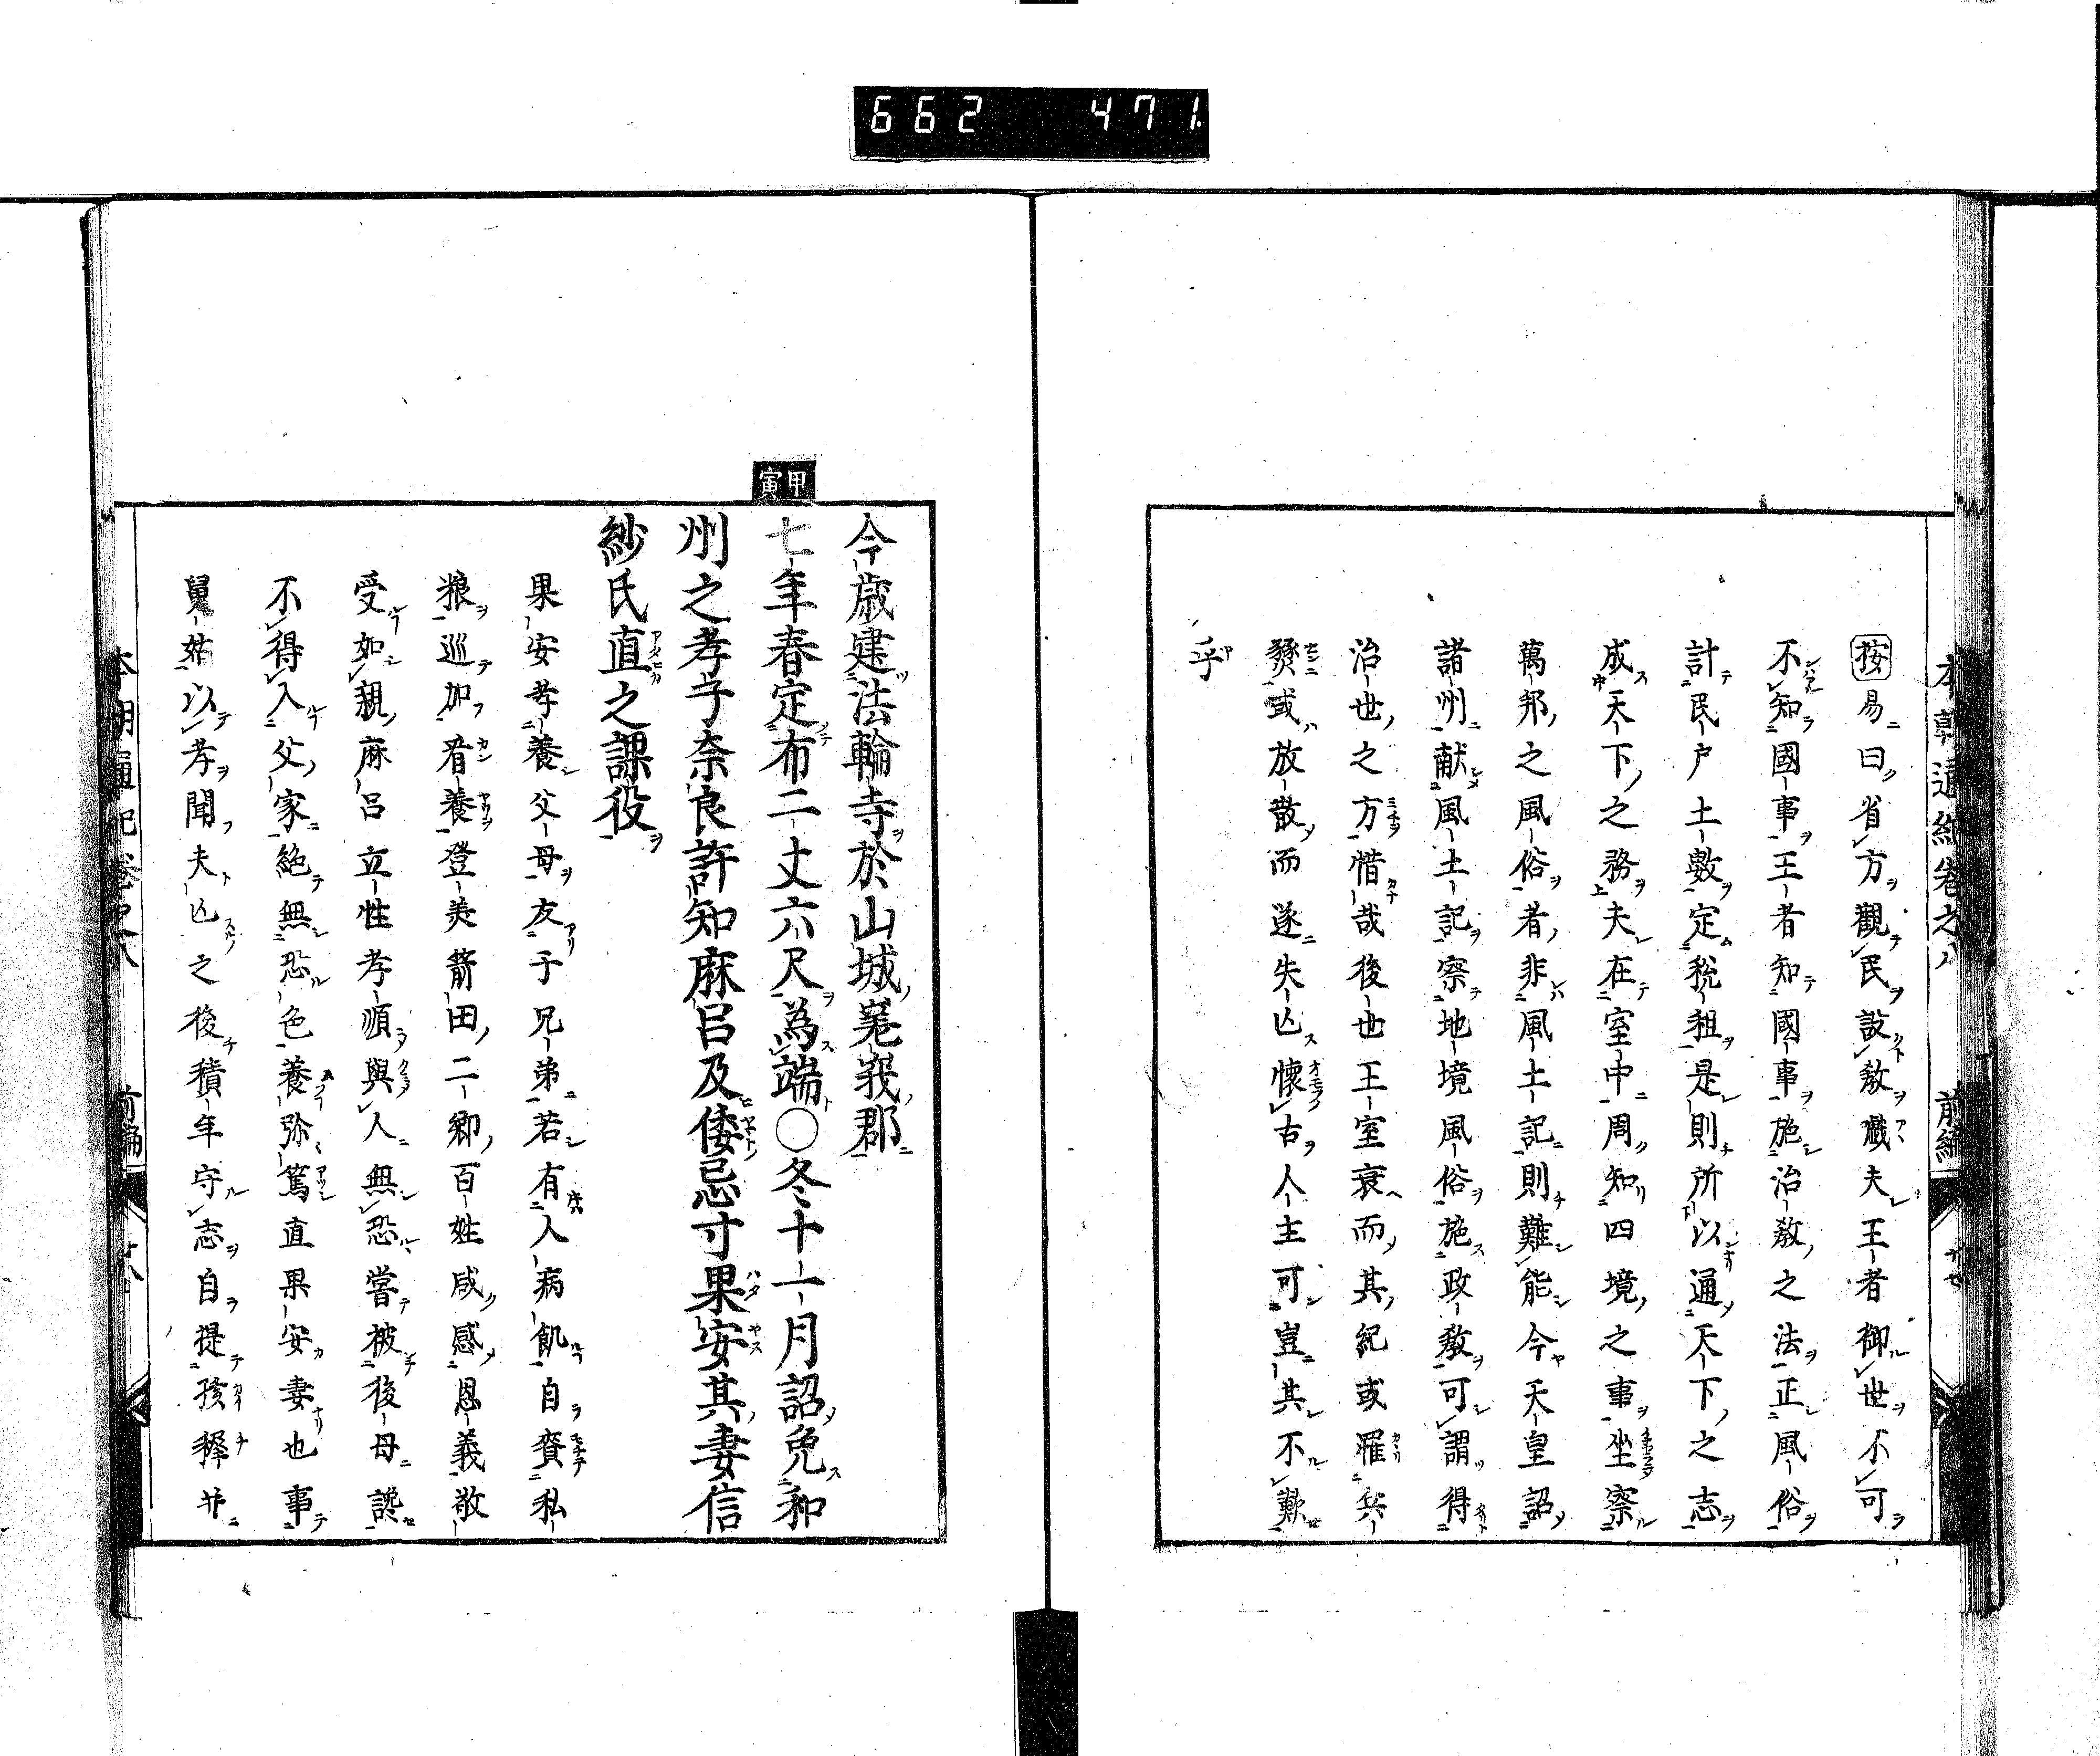 662 471
本朝通紀卷之八 前編
按易曰省方觀民設敎嘰夫王者御世不可
不知國事王者知國事施治敎之法正風俗
計民戸土數定稅租是則所以通天下之志
成天下之務夫在室中周知四境之事坐察
萬邦之風俗者非風土記則難能今天皇詔
諸州献風土記察地境風俗施政敎可謂得
治世之方惜哉後世王室衰而其紀或罹兵
燹或放散而遂失亾懷古人主可豈其不歎
乎
甲寅
今歳建法輪寺於山城嵬峩郡
七年春定布二丈六尺為端〇冬十一月詔免和
州之孝子奈良許知麻呂及倭忌寸果安其妻信
紗氏直之課役
果安孝養父母友于兄弟若有人病飢自賫私
粮巡加看養登美箭田二郷百姓咸感恩義敬
受如親麻呂立性孝順與人無恐嘗被後母讒
不得入父家絶無恐色養弥篤直果安妻也事
舅姑以孝聞夫亾之後積年守志自提孩穉并